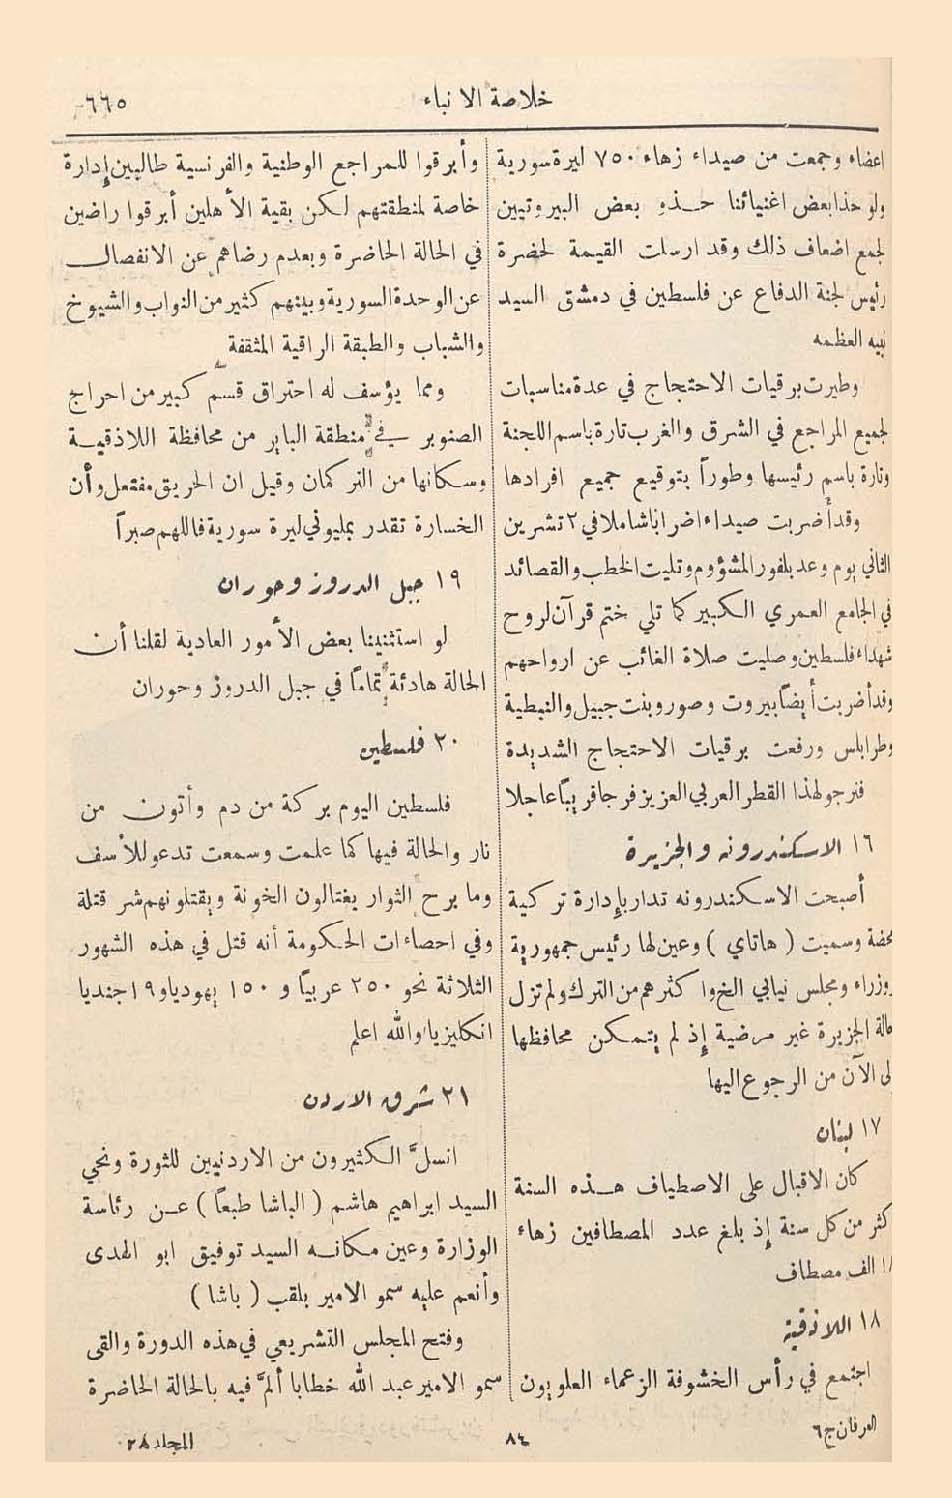 خلاصة الانباء
٦٦٥
اعضاء وجمعت من صيداء زهاء ٧٥٠ ليرة سورية
ولو حذا بعض اغنيائنا حذو بعض البيروتيين
لجمع اضعاف ذلك وقد ارسلت القيمة لحضرة
رئيس لجنة الدفاع عن فلسطين في دمشق السيد
نبيه العظمه
وطيرت برقيات الاحتجاج في عدة مناسبات
لجميع المراجع في الشرق والغرب تارة باسم اللجنة
وتارة باسم رئيسها وطوراً بتوقيع جميع افرادها
وقد أضربت صيداء اضرابا شاملا في ٢ تشرين
الثاني يوم وعد بلفور المشؤوم وتليت الخطب والقصائد
في الجامع العمري الكبير كما تلي ختم قرآن لروح
شهداء فلسطين وصليت صلاة الغائب عن ارواحهم
وقد أضربت أيضاً بيروت وصور وبنت جبيل والنبطية
وطرابلس ورفعت برقيات الاحتجاج الشديدة
فنرجو لهذا القطر العربي العزيز فرجا قريباً عاجلا
١٦ الاسكندرونه والجزيرة
أصبحت الاسكندرونه تدار بإدارة تركية
محضة وسميت ( هاتاي ) وعين لها رئيس جمهورية
ووزراء ومجلس نيابي الخ وا كثرهم من الترك ولم تزل
حالة الجزيرة غير مرضية إذ لم يتمكن محافظها
الى الآن من الرجوع اليها
١٧ لبنان
كان الاقبال على الاصطياف هذه السنة
كثر من كل سنة إذ بلغ عدد المصطافين زهاء
الف مصطاف
١٨ اللاذقية
اجتمع في رأس الخشوفة الزعماء العلويون
وأبرقوا للمراجع الوطنية والفرنسية طالبين إدارة
خاصة لمنطقتهم لكن بقية الأهلين أبرقوا راضين
في الحالة الحاضرة وبعدم رضاهم عن الانفصال
عن الوحدة السورية وبينهم كثير من النواب والشيوخ
والشباب والطبقة الراقية المثقفة
ومما يؤسف له احتراق قسم كبير من احراج
الصنوبر في منطقة الباير من محافظة اللاذقية
وسكانها من التركمان وقيل ان الحريق مفتعل وأن
الخسارة تقدر بمليوني ليرة سورية فاللهم صبراً
١٩ جبل الدروز وحوران
لو استثنينا بعض الأمور العادية لقلنا أن
الحالة هادئة تماماً في جبل الدروز وحوران
٢٠ فلسطين
فلسطين اليوم بركة من دم وأتون من
نار والحالة فيها كما علمت وسمعت تدعو للأسف
وما برح الثوار يغتالون الخونة ويقتلونهم شر قتلة
وفي احصاءات الحكومة أنه قتل في هذه الشهور
الثلاثة نحو ٢٥٠ عربياً و ١٥٠ يهوديا و١٩ جنديا
انكليزيا والله اعلم
٢١ شرق الاردن
انسلَّ الكثيرون من الاردنيين للثورة ونحي
السيد ابراهيم هاشم ( الباشا طبعاً ) عن رئاسة
الوزارة وعين مكانه السيد توفيق ابو الهدى
وأنعم عليه سمو الامير بلقب ( باشا )
وفتح المجلس التشريعي في هذه الدورة والقى
سمو الامير عبد الله خطابا ألمَّ فيه بالحالة الحاضرة
العرفان ج٦
٨٤
المجلد ٢٨